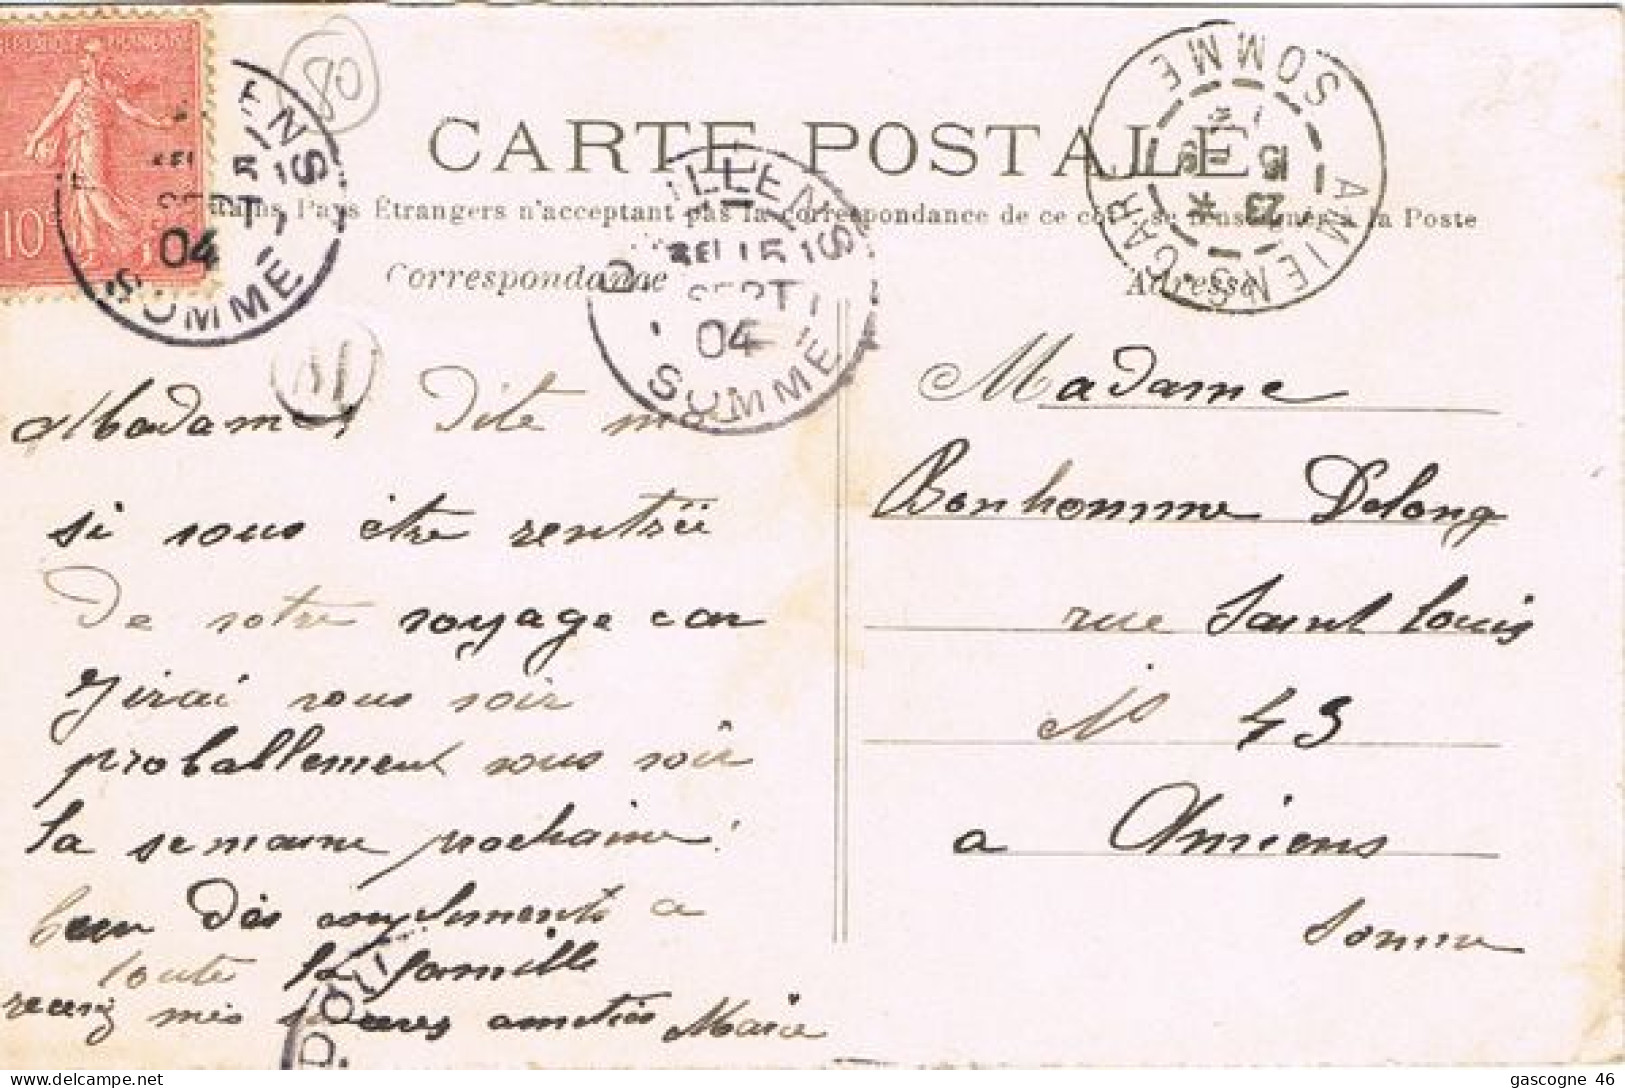 REPUBLIQUE FRANÇAISE
10
80
CARTE POSTALE
Pays Étrangers n'acceptant pas la correspondance de ce côté se renseigner à la Poste
Correspondance
Adresse
DOULLENS
15
SEPT
04
SOMME
AMIENS GARE
23
15
SOMME
Madame, Dite moi
si vous être rentrée
De votre voyage car
J'irai vous voir
proballement vous voir
la semaine prochaine
bien Dès compliments a
toute la famille
recevez mes amitiés Marie
Madame
Bonhomme Delong
rue Saint Louis
No 43
a Amiens
Somme
gascogne 46